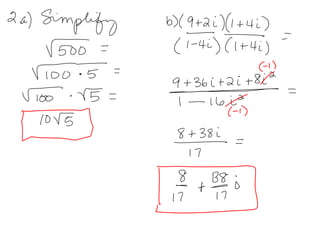 2a) Simplify
√500 =
√100·5 =
√100 · √5 =
10√5
b) (9+2i)(1+4i)
(1-4i)(1+4i) =
(-1)
9+36i+2i+8i²
1 - 16i² =
(-1)
8+38i
17 =
8 + 38 i
17 17